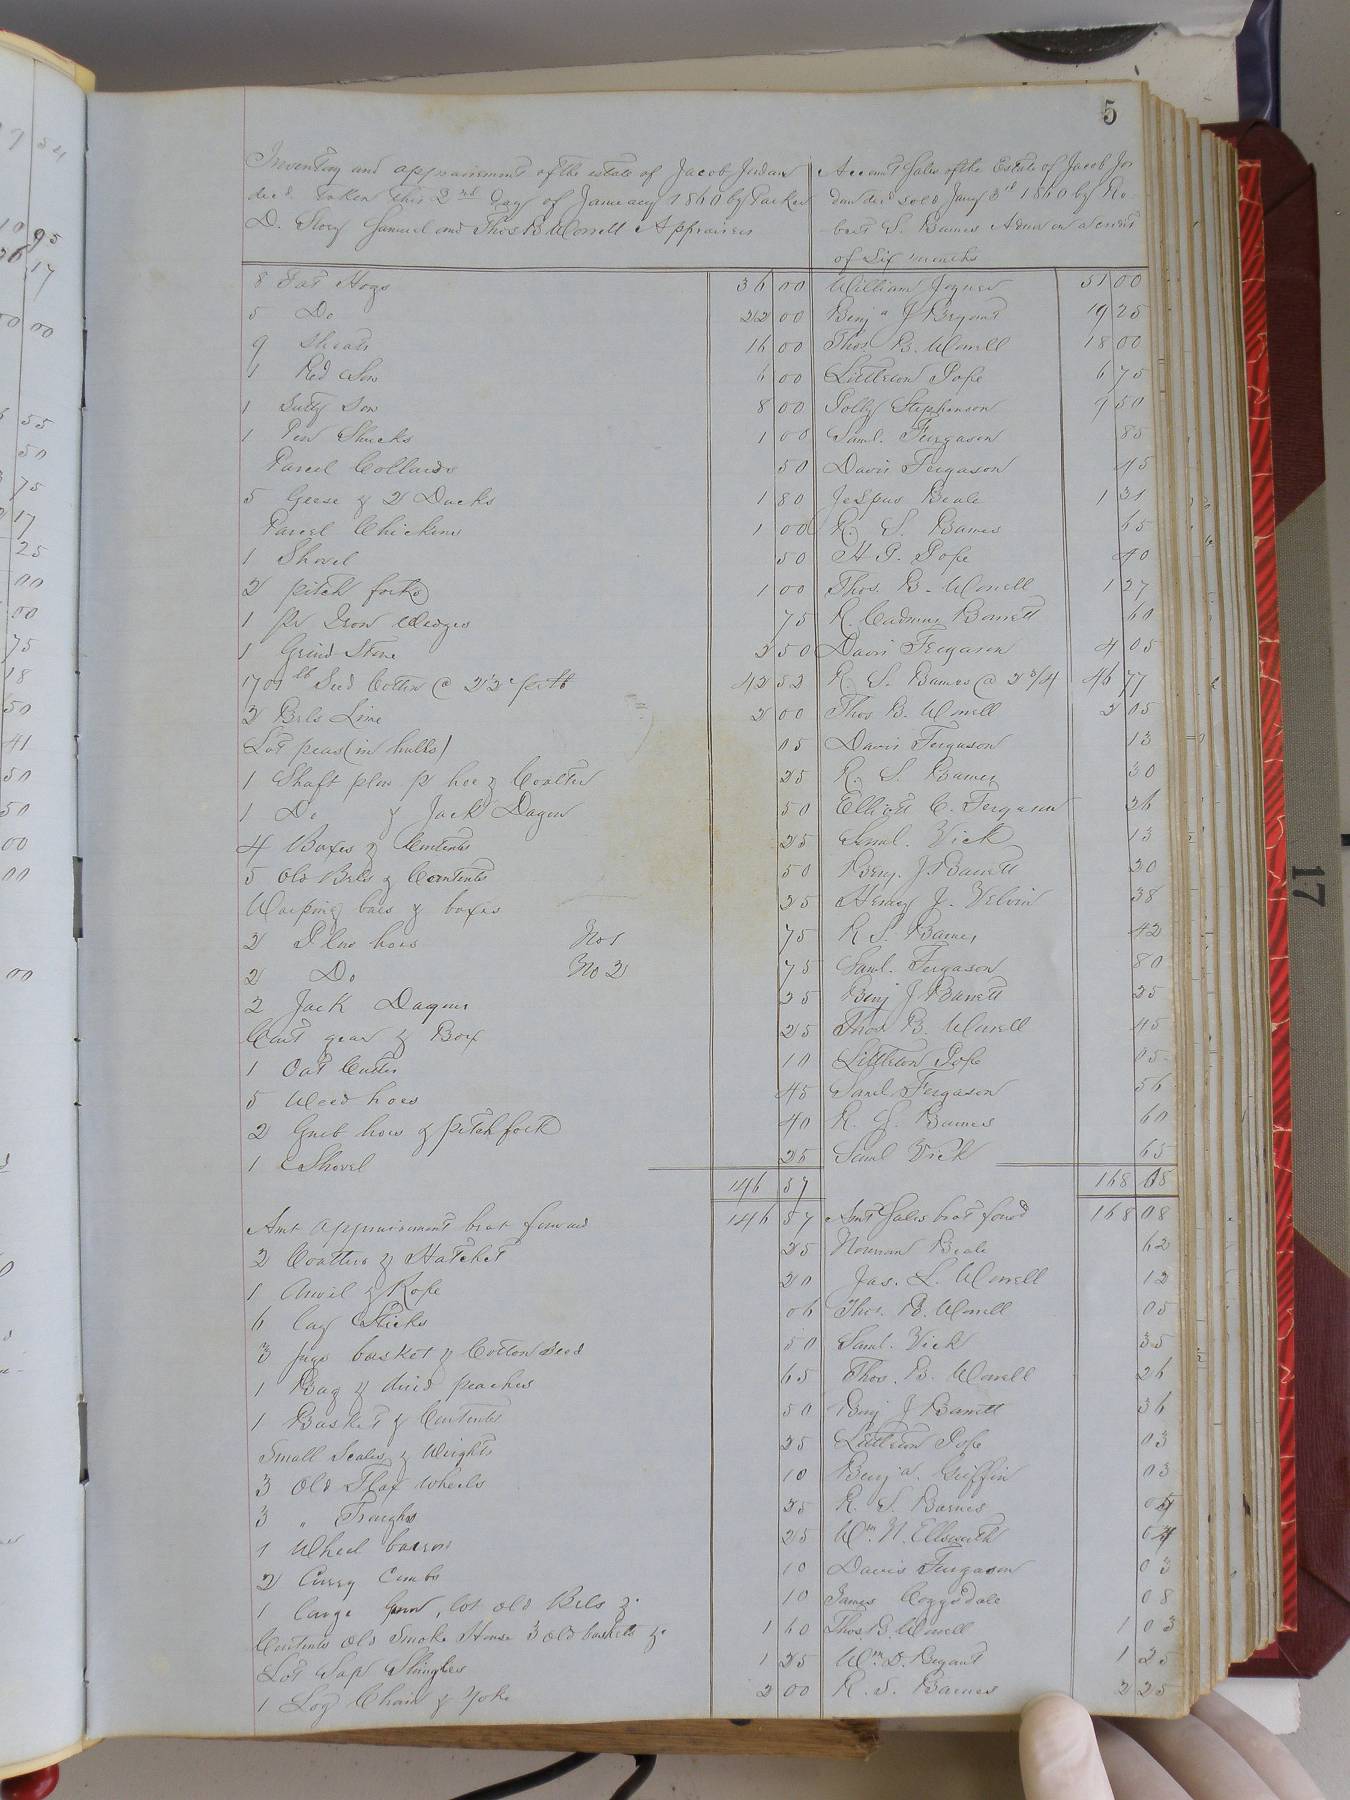 5
Inventory and appraisement of the estate of Jacob Jordan
decd. taken this 2nd day of January 1860 by Parker
D. Story Samuel and Thos B. Worrell Appraisers
Account Sales of the Estate of Jacob Jor
dan decd sold Jany 3rd 1860 by Ro
bert S. Barnes Admr on a credit
of Six months
8 Fat Hogs 36 00 William Joyner 51 00
5 Do 22 00 Benja J Bryant 19 25
9 Shoats 16 00 Thos. B. Worrell 18 00
1 Red Sow 6 00 Littleton Pope 6 75
1 Sow 8 00 Polly Stephenson 9 50
1 Pen Shucks 1 00 Saml. Fergason 85
Parcel Collards 50 Davis Fergason 45
5 Geese & 2 Ducks 1 80 Beale 1 31
Parcel Chickens 1 00 R. S. Barnes 65
1 Shovel 50 H P. Pope 40
2 pitch forks 1 00 Thos. B. Worrell 1 27
1 pr Iron Wedges 75 R. Cadmus Barrett 60
1 Grind Stone 2 50 Davis Fergason 4 05
1701 lb Seed Cotton @ 2½c pr lb 42 52 R. S. Barnes @ 2 3/4 46 77
2 Brls Lime 2 00 Thos B. Worrell 2 05
Lot peas (in hulls) 05 Davis Fergason 13
1 Shaft plow p hoe & Coalter 25 R. S. Barnes 30
1 Do & Jack Dagon 50 Elliott C. Fergason 26
4 Boxes & Contents 25 Saml. Vick 13
5 Old Brls & Contents 50 Benj. J. Barrett 20
Warping bars & boxes 25 Henry J. Velvin 38
2 Plow hoes No 1 75 R S. Barnes 42
2 Do No 2 75 Saml. Fergason 80
2 Jack Dagons 25 Benj J Barrett 25
Cart gear & Box 25 Thos B. Worrell 45
1 Oat Cutter 10 Littleton Pope 05
5 Weed hoes 45 Saml. Fergason 56
2 Grub hoes & pitch fork 40 R. S. Barnes 60
1 Shovel 25 Saml Vick 65
146 57 168 08
Amt appraisement brot forward 146 57 Amt Sales brot forwd 168 08
2 Coalters & Hatchet 25 Norman Beale 62
1 Anvil & Rope 20 Jas. L. Worrell 12
6 Sticks 06 Thos. B. Worrell 05
3 Jugs basket & Cotton seed 50 Saml. Vick 35
1 Bag & dried peaches 65 Thos. B. Worrell 26
1 Basket & Contents 50 Benj J Barrett 36
Small Scales & Weights 25 Littleton Pope 03
3 Old Flax Wheels 10 Benja. Griffin 03
3 " Troughs 25 R. S. Barnes 04
1 Wheel barrow 25 Wm. N. Ellsworth 04
2 Curry Combs 10 Davis Fergason 03
1 Large Gun, lot old Brls &c 10 James Coggsdale 08
Contents old Smoke House 3 old baskets &c 1 60 Thos. B. Worrell 1 03
Lot Sap Shingles 1 25 Wm. D. Bryant 1 25
1 Log Chain & Yoke 2 00 R. S. Barnes 2 25
17